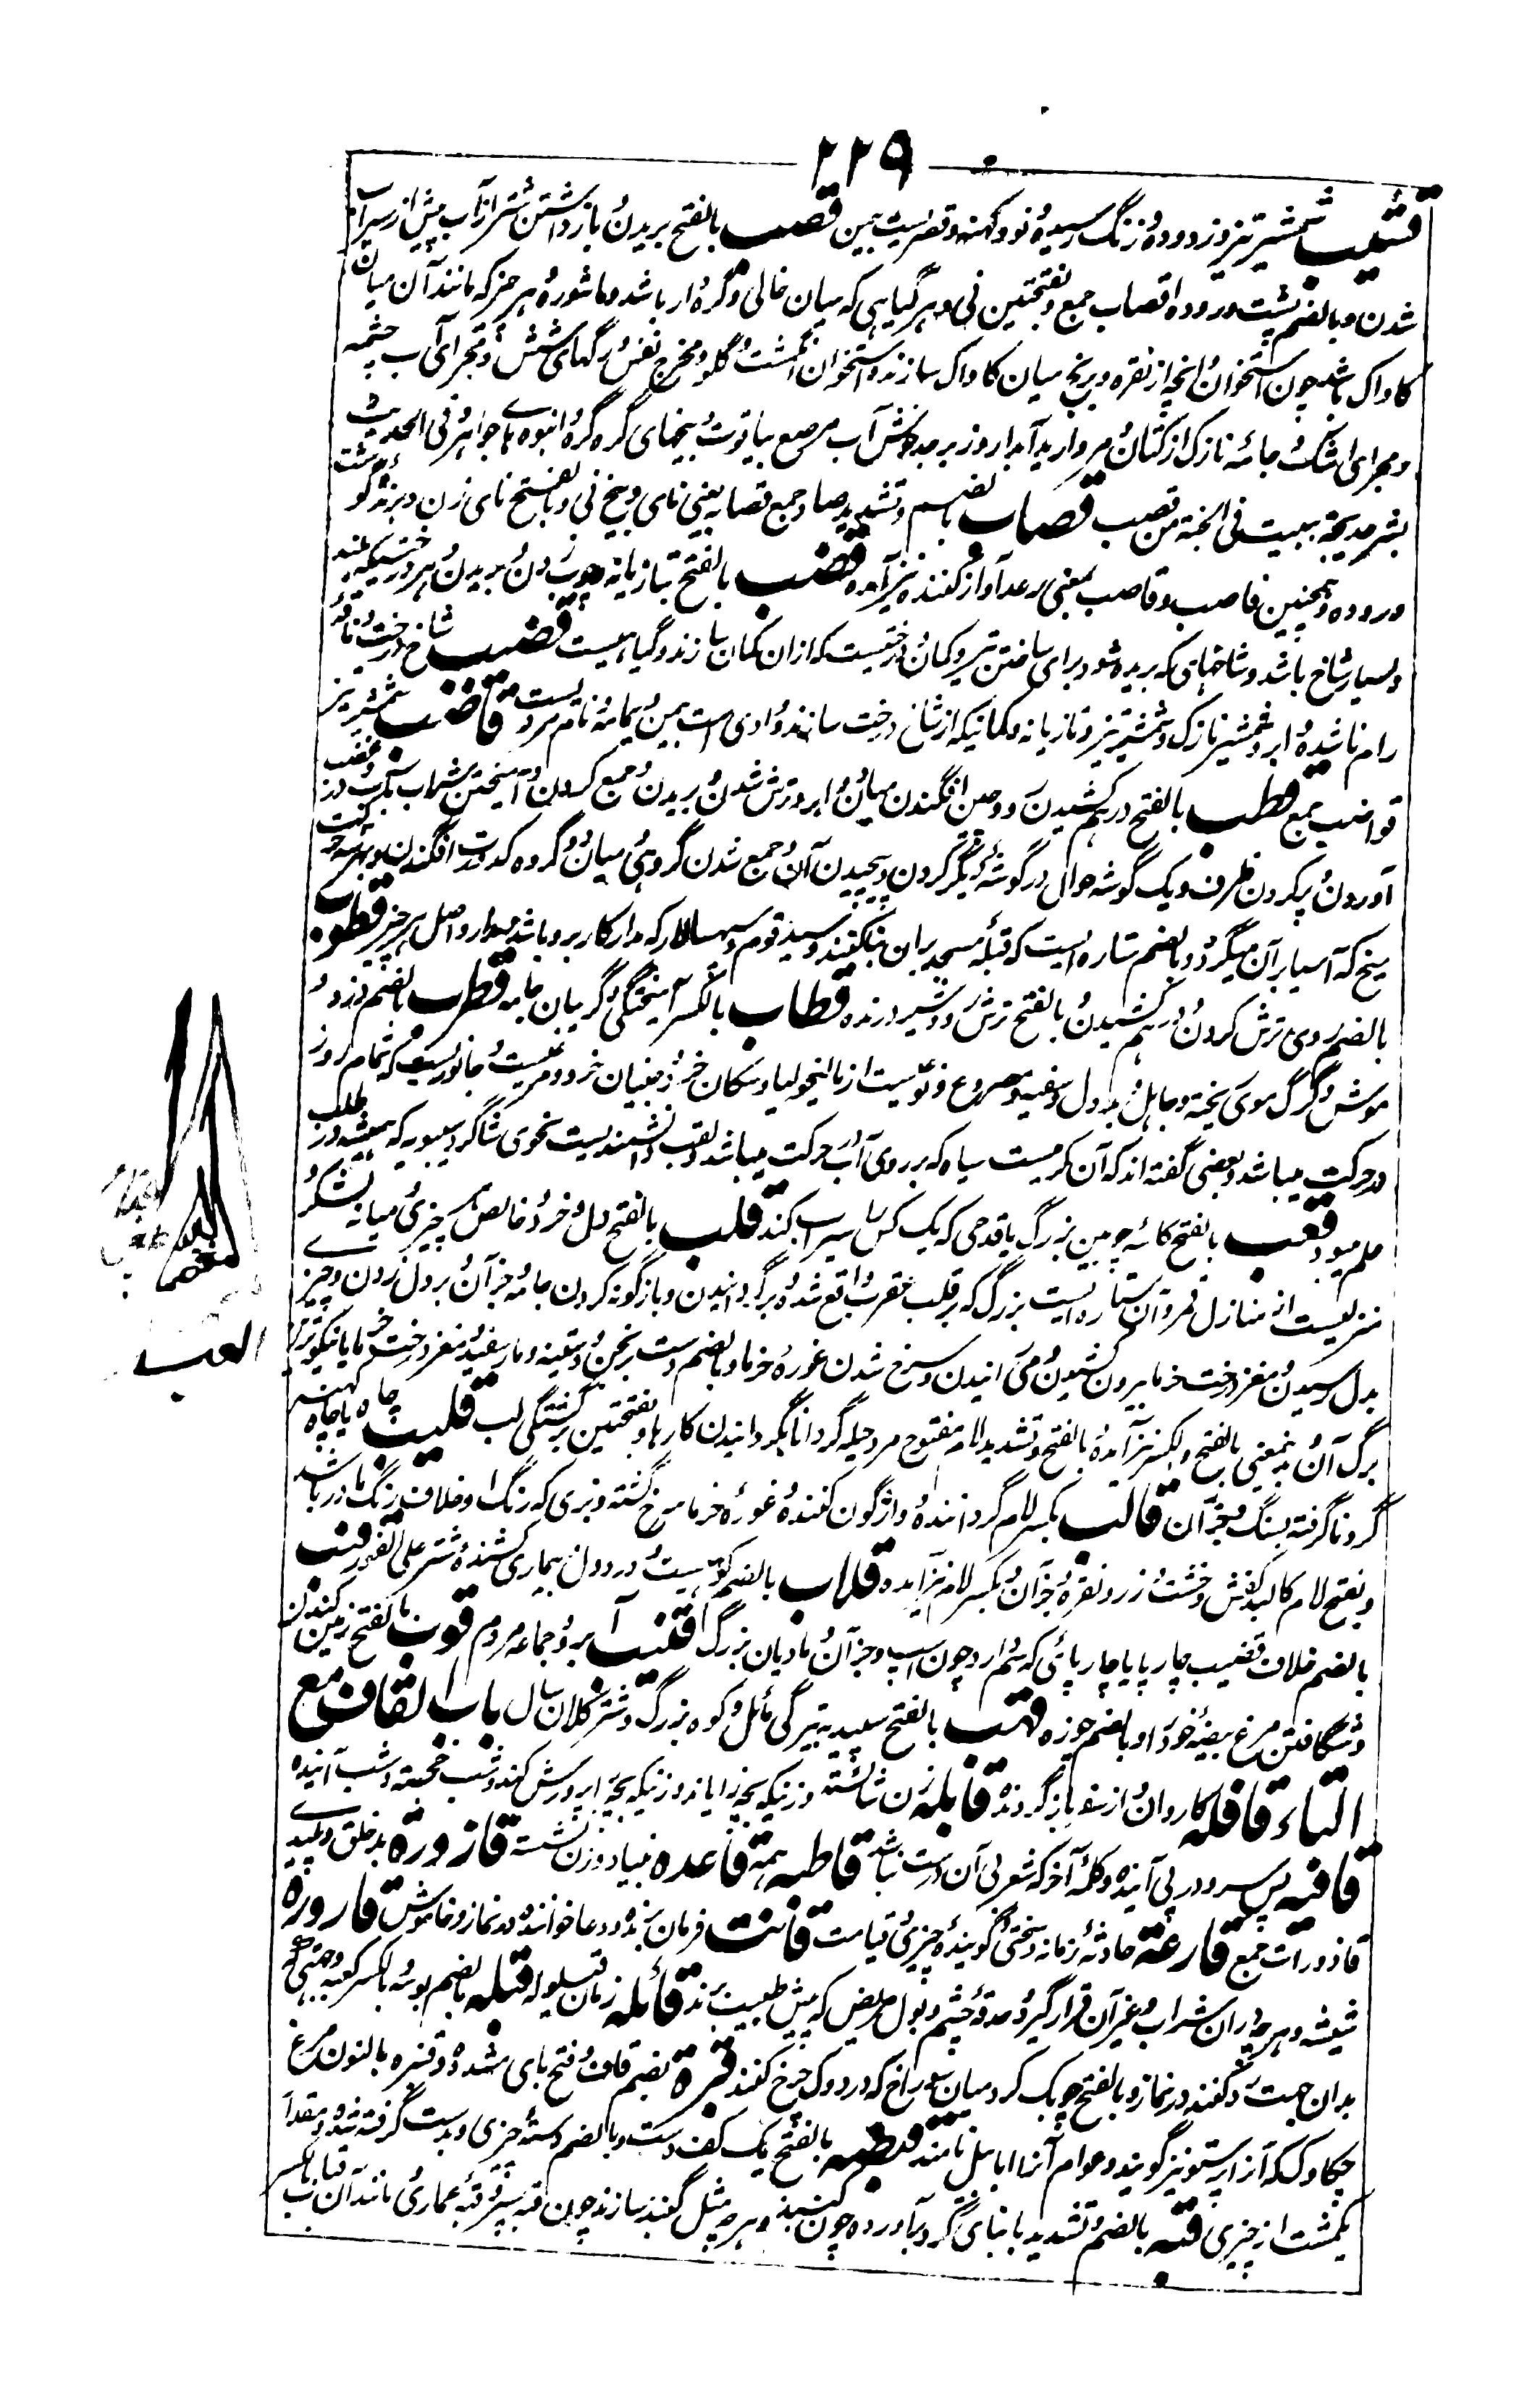 ۲۲۹
قشیب شمشیر تیز و زدوده و زنگ رسیده و نو و کهنه و قصریست بیمن قصب بالفتح بریدن و بازداشتن شتر از آب پیش از سیراب
شدن و بالضم پشت و روده اقصاب جمع و بفتحتین نی و هر گیاهی که میان خالی و گره دار باشد و ماشوره و هر چیز که مانند آن میان
کاواک باشد چون استخوان و آنچه از نقره و برنج میان کاواک سازند و استخوان انگشت و گلو و مخرج نفس و رگهای شش و مجرای آب چشمه
و مجرای اشک و جامهٔ نازک از کتان و مروارید آبدار و زبرجد خوش آب مرصع بیاقوت و بیخهای گره گره و انبوه با جواهر و فی الحدیث
بشر خدیجة ببیت فی الجنة من قصب قصاب بالضم و تشدید صاد جمع قصابه یعنی نای و بیخ نی و بالفتح نای زن و برندهٔ گوشت
و روده و همچنین قاصب و قاصب بمعنی رعد آواز کننده نیز آمده قضب بالفتح بتازیانه و چوب زدن و بریدن و هر درختیکه بلند
و بسیار شاخ باشد و شاخهای که بریده شود برای ساختن تیر و کمان و درختیست که ازان کمان سازند و گیاهیست قضیب شاخ درخت و ناقهٔ
رام ناشده و ابر و شمشیر نازک و شمشیر تیز و تازیانه و کمانیکه از شاخ درخت سازند و وادی است بیمن و یمامه و نام مردیست قاضب شمشیر تیز
قواضب جمع قطب بالفتح درهم کشیدن و چین افگندن میان دو ابرو و ترش شدن و بریدن و جمع کردن و آمیختن شراب بآب و در غضب
آوردن و پر کردن ظرف و یک گوشه جوال در گوشهٔ دیگر کردن و پیچیدن آن و جمع شدن گروهی میان دو گروه کدورت افگندن و بهر سه حرکت
میخ که آسیا بر آن میگردد و بالضم ستاره ایست که قبله مسجد بران بنا کنند و سید قوم و سپهسالار که مدار کار برو باشد و مدار و اصل هر چیز قطوب
بالضم روی ترش کردن و درهم کشیدن و بالفتح ترش رو و شیر درنده قطاب بالکسر آمیختگی و گریبان جامه قطرب بالضم دزد و
موش و گرگ موی ریخته و جاهل و بددل و سفیه و مصروع و نوعیست از مالیخولیا و سگان خرد و جنیان خرد و مرغیست و جانوریست که تمام روز
در حرکت میباشد و بعضی گفته اند که آن کرمیست سیاه که بر روی آب در حرکت میباشد و لقب دانشمندیست نحوی شاگرد سیبویه که همیشه در طلب
علم میبود قعب بالفتح کاسهٔ چوبین بزرگ یا قدحی که یک کس را سیراب کند قلب بالفتح دل و خرد و خالص هر چیزی و میانه لشکر و
منزلیست از منازل قمر و آن ستاره ایست بزرگ که بر قلب عقرب واقع شده و برگردانیدن و بازگونه کردن جامه و جز آن و بر دل زدن و چیزی
بدل رسیدن و مغز درخت خرما بیرون کشیدن و میرانیدن و سرخ شدن غورهٔ خرما و بالضم دست رنجن و دستینه و مار سفید و مغز درخت خرما یا نیکوترین
برگ آن و بدین معنی بالفتح و بکسر نیز آمده و بالفتح و تشدید لام مفتوح مرد حیله گر دانا بگردانیدن کارها و بفتحتین برگشتگی لب قلیب چاه یا چاه کهنه سر
گرد ناگرفته بسنگ و جز آن قالب بکسر لام گرداننده و واژگون کننده و غورهٔ خرما سرخ گشته و بزی که رنگ او خلاف رنگ مادر باشد
و بفتح لام کالبد کفش و خشت و زر و نقره و جز آن و بکسر لام نیز آمده قلاب بالضم کوهیست و درد دل و بیماری کشندهٔ شتر علی الفور قنب
بالضم غلاف قضیب چارپایا چارپائی که سم دارد چون اسپ و جز آن و بادبان بزرگ قنیب ابر و جماعه مردم قوب بالفتح زمین کندن
و شگافتن مرغ بیضهٔ خود را و بالضم جوزه قهب بالفتح سپید به تیرگی مائل و کوه بزرگ و شتر کلان سال باب القاف مع
التاء قافله کاروان و از سفر بازگردنده قابله زن شائسته و زنیکه بچه زایاند و زنیکه بچه را پرورش کند و شب خجسته و شب آینده
قافیه پس سر و در پی آینده و کلمهٔ آخر که شعر بی آن درست نباشد قاطبه همه قاعده بنیاد و زن نشسته قاذورة بد خلق و پلیدی
قاذورات جمع قارعة حادثهٔ زمانه و سختی و کوبندهٔ چیزی و قیامت قانت فرمان برنده و دعا خواننده در نماز و خاموش قارورة
شیشه و هر چه دران شراب و غیر آن قرار گیرد و حدقهٔ چشم و بول مریض که پیش طبیب برند قائله زمان قیلوله قبله بالضم بوسه و بالکسر کعبه و جهتی که
بدان جهت رو کنند در نماز و بالفتح چوبک گرد میان سوراخ که در دوک چرخ کنند قبرة بضم قاف و فتح بای مشدده و قنبره بالنون مرغ
چکاوک که آنرا پرستو نیز گویند و عوام آنرا ابابیل نامند قبضه بالفتح یک کف دست و بالضم دستهٔ چیزی و بدست گرفته شده و مقدار
یکمشت از چیزی قبه بالضم و تشدید با بنای گرد برآورده چون گنبد و هر چه مثل گنبد سازند چون قبه سپر و قبهٔ عماری و مانند آن قباب بالکسر